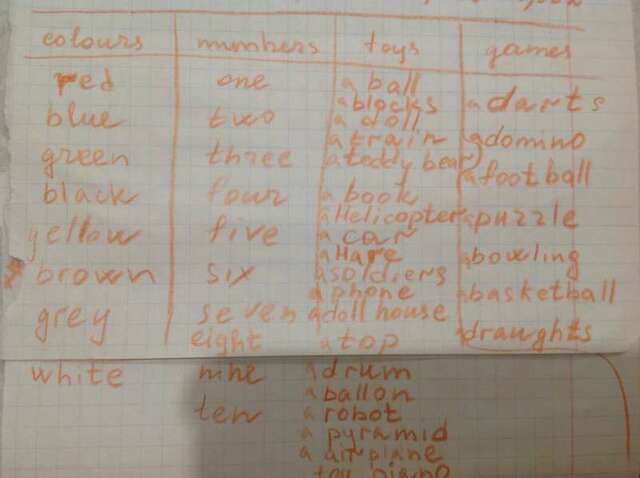 colours numbers toys games
red one a ball
a blocks a darts
blue two a doll
a train a domno
green three a teddy bear
a football
black four a book
a Helicopter a puzzle
yellow five a car
a Hare a bowling
brown six a soldiers
a phone a basketball
grey seven a doll house
eight a top a draughts
white nine a drum
a ballon
ten a robot
a pyramid
a airplane
toy piano